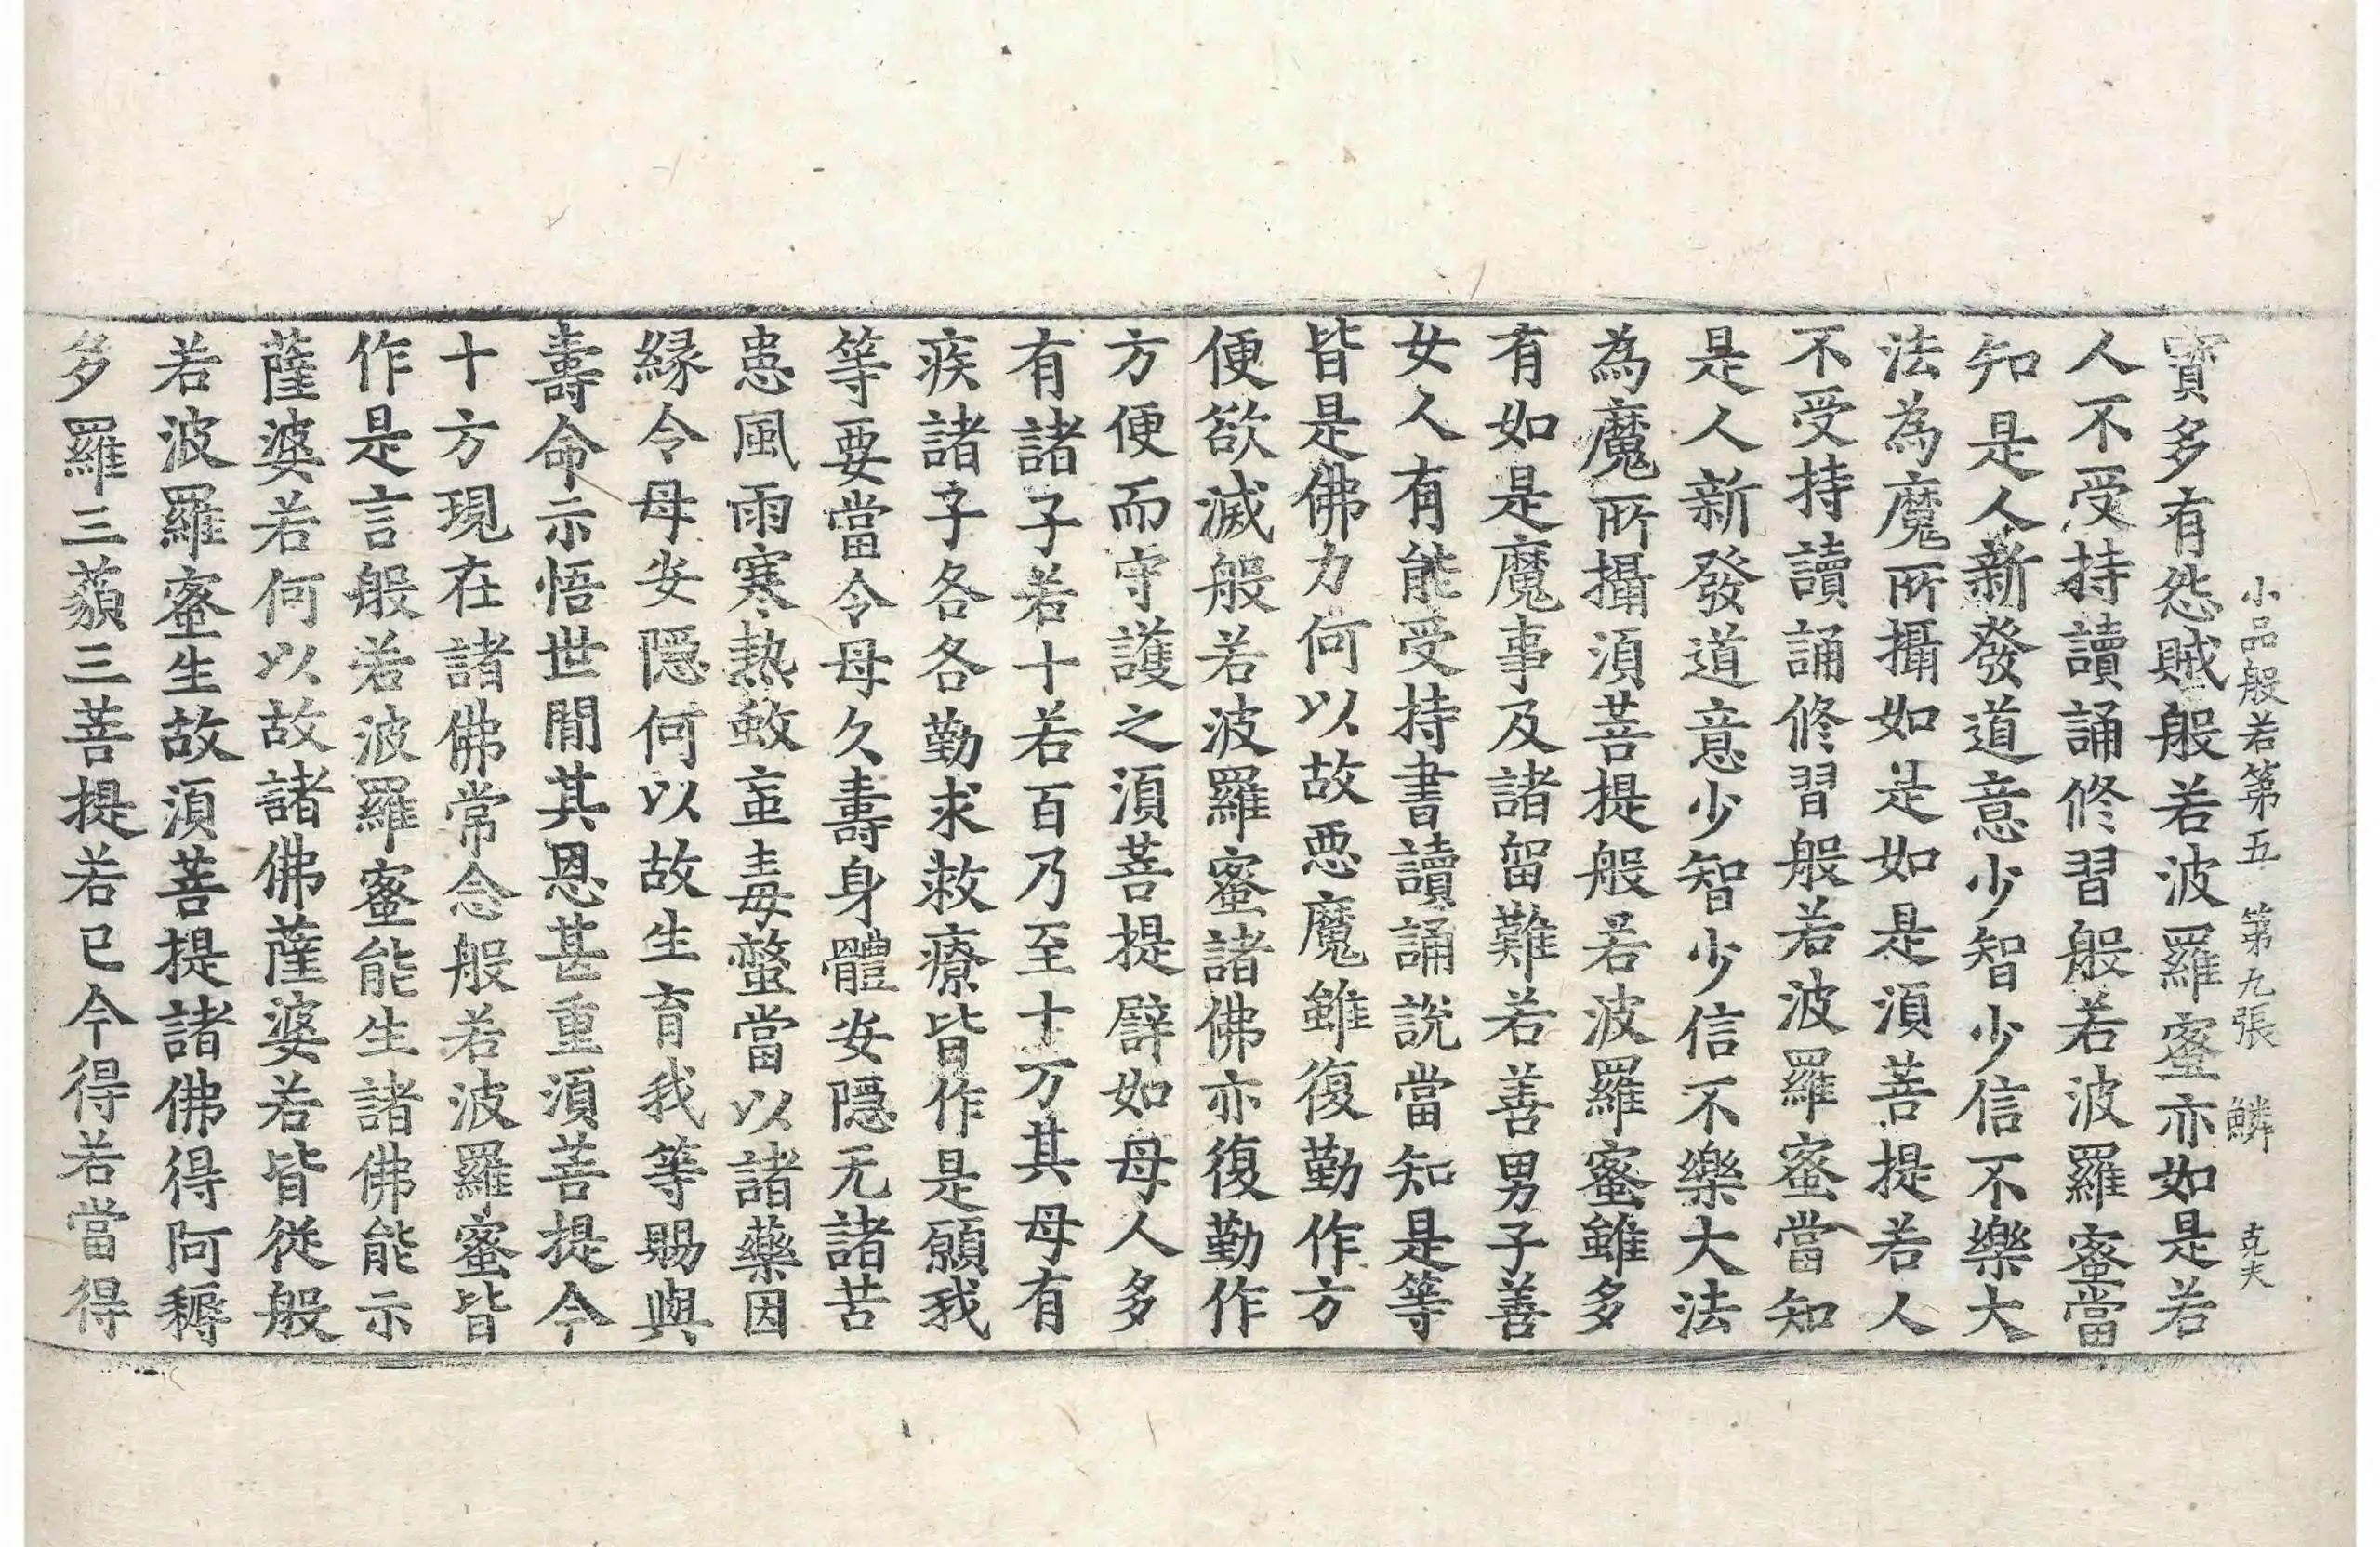 小品般若第五 第九張 鱗 克夫
寶多有怨賊般若波羅蜜亦如是若
人不受持讀誦修習般若波羅蜜當
知是人新發道意少智少信不樂大
法為魔所攝如是如是須菩提若人
不受持讀誦修習般若波羅蜜當知
是人新發道意少智少信不樂大法
為魔所攝須菩提般若波羅蜜雖多
有如是魔事及諸留難若善男子善
女人有能受持書讀誦說當知是等
皆是佛力何以故惡魔雖復勤作方
便欲滅般若波羅蜜諸佛亦復勤作
方便而守護之須菩提譬如母人多
有諸子若十若百乃至十方其母有
疾諸子各各勤求救療皆作是願我
等要當令母久壽身體安隱无諸苦
患風雨寒熱蚊䖟毒螫當以諸藥因
緣令母安隱何以故生育我等賜與
壽命示悟世閒其恩甚重須菩提今
十方現在諸佛常念般若波羅蜜皆
作是言般若波羅蜜能生諸佛能示
薩婆若何以故諸佛薩婆若皆從般
若波羅蜜生故須菩提諸佛得阿耨
多羅三藐三菩提若已今得若當得